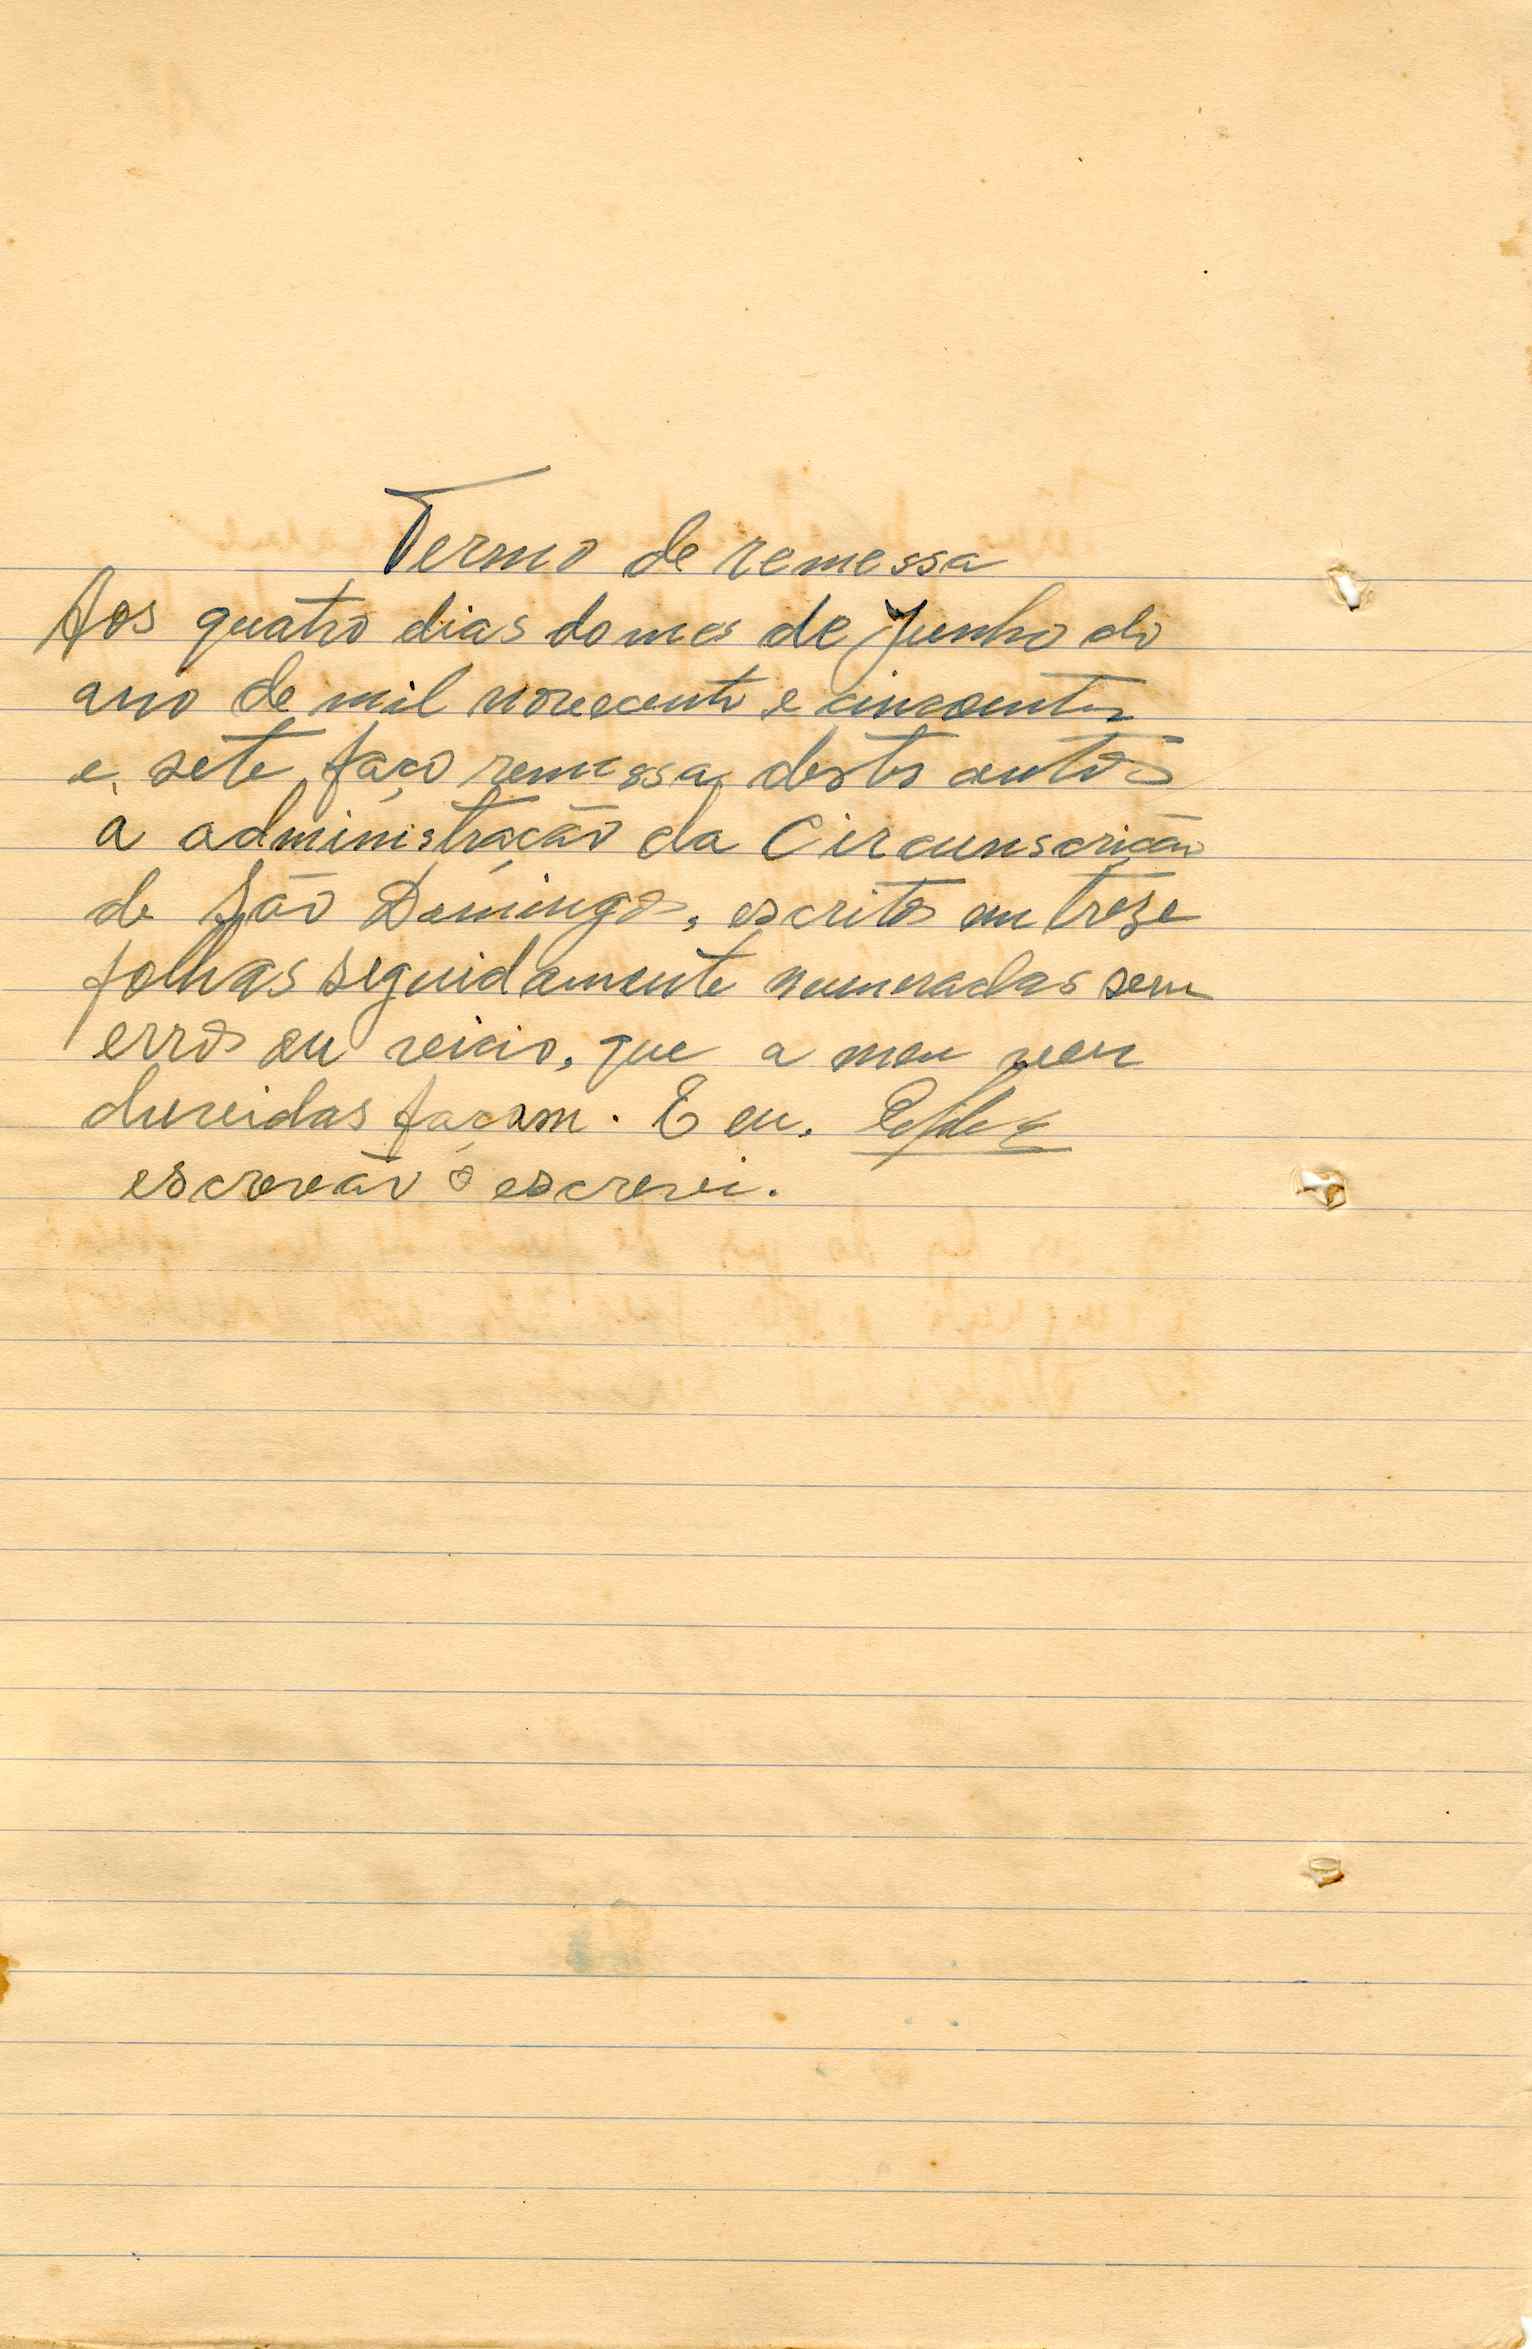 Termo de remessa
Aos quatro dias do mes de Junho do
ano de mil novecento e cincoenta
e sete, faço remessa destes autos
a administração da Circunscrição
de São Domingos, escritos em treze
folhas seguidamente numeradas sem
erros ou vicio, que a meu ver
duvidas façam. E eu,
escrevão o escrevi.